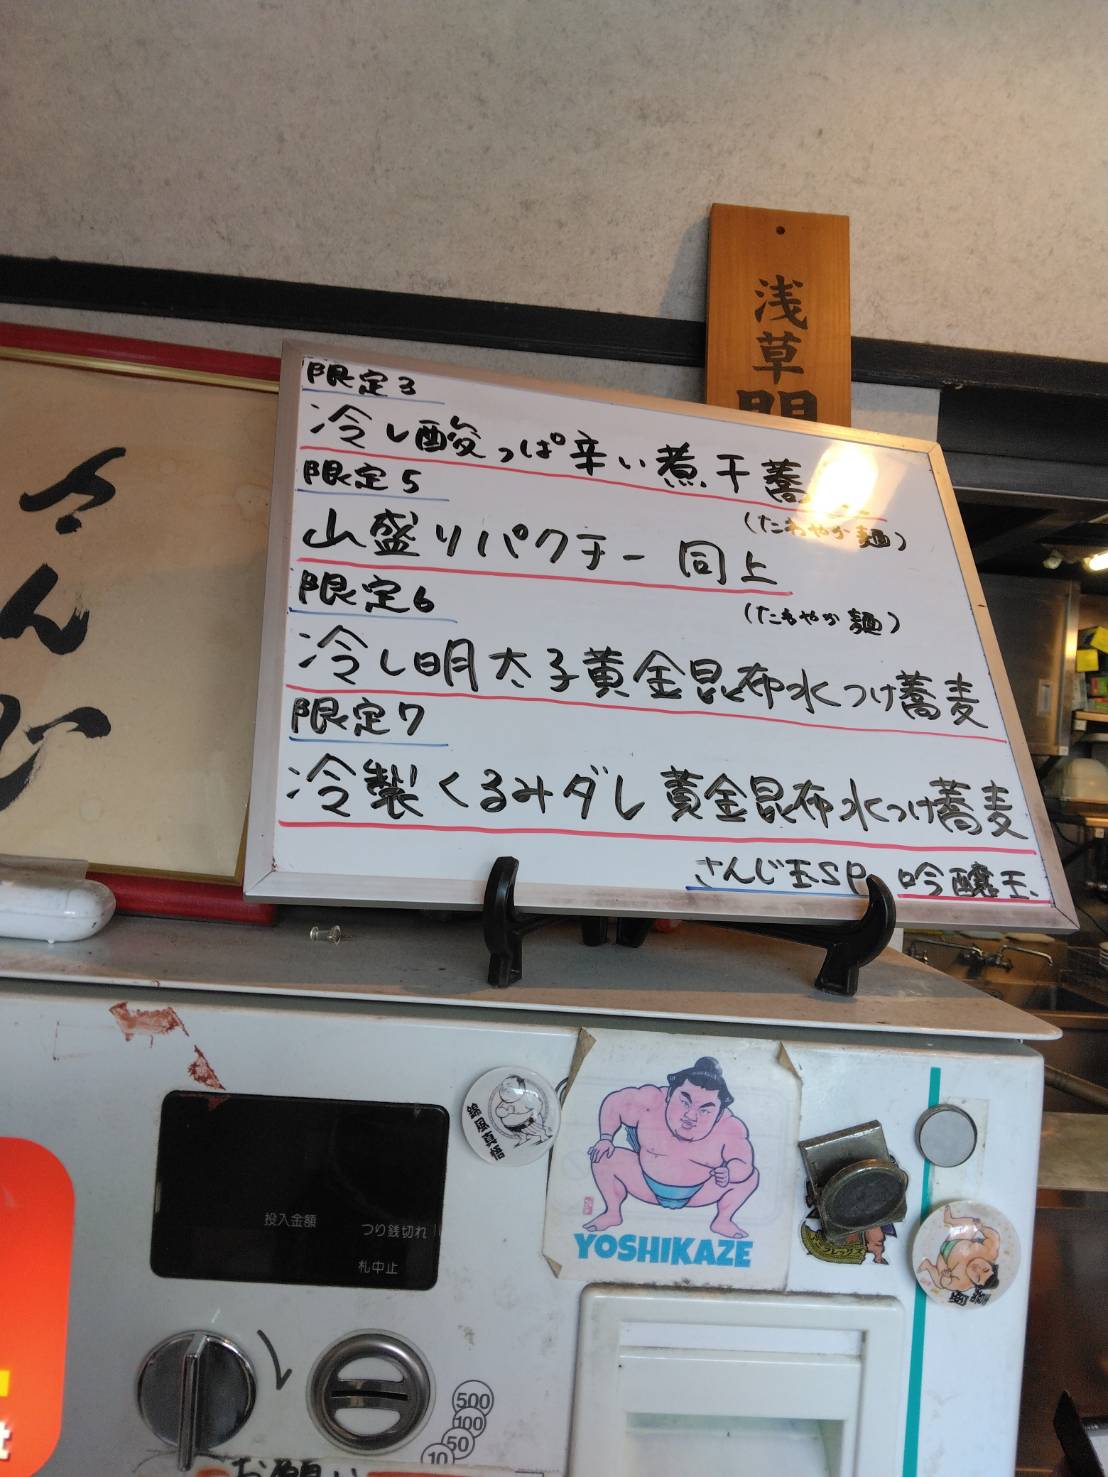 浅草
限定3
冷し酸っぱ辛い煮干蕎
(たわやか麺)
限定5
山盛りパクチー 同上
(たわやか麺)
限定6
冷し明太子黄金昆布水つけ蕎麦
限定7
冷製くるみダレ 黄金昆布水つけ蕎麦
さんじ玉SP、吟醸玉、
さんじ
投入金額
つり銭切れ
札中止
YOSHIKAZE
500
100
50
10
お願い